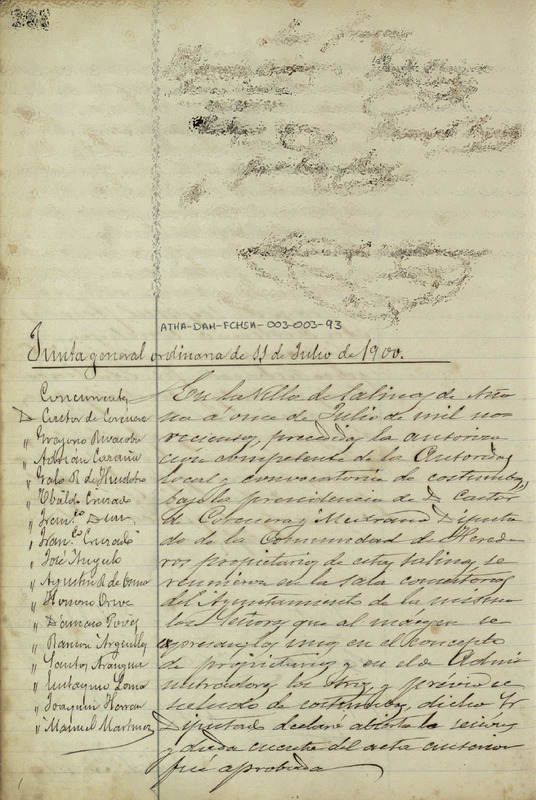 ATHA-DAH-FCHSA-003-003-93
Junta general ordinaria de 11 de Julio de 1900.
Concurrentes
D. Castor de Corcuera
" Gregorio
" Adrian
" Galo R. de
" Ubaldo Cruzado
" Fran.co
" Fran.co Cruzado
" José Angulo
" Agustin R. de
" Honorio Orive
" Damaso Povés
" Ramon Arguilles
" Santos Arangue
" Eustaquio Loma
" Joaquin Herran
" Manuel Martinez
En la Villa de Salinas de Aña
na á once de Julio de mil no
vecientos, precedida la autoriza
ción competente de la Autoridad
local y convocatoria de costumbre,
bajo la presidencia de D. Castor
de Corcuera y Medrano Diputa
do de la Comunidad de Herede
ros propietarios de estas salinas, se
reunieron en la sala consistorial
del Ayuntamiento de la misma
los Señores que al margen se
expresan, los unos en el concepto
de propietarios y en el de Admi
nistradores los otros, y previo se
ñalado de costumbre, dicho Sr
Diputado declaró abierta la sesion
y dada cuenta del acta anterior
fué aprobada